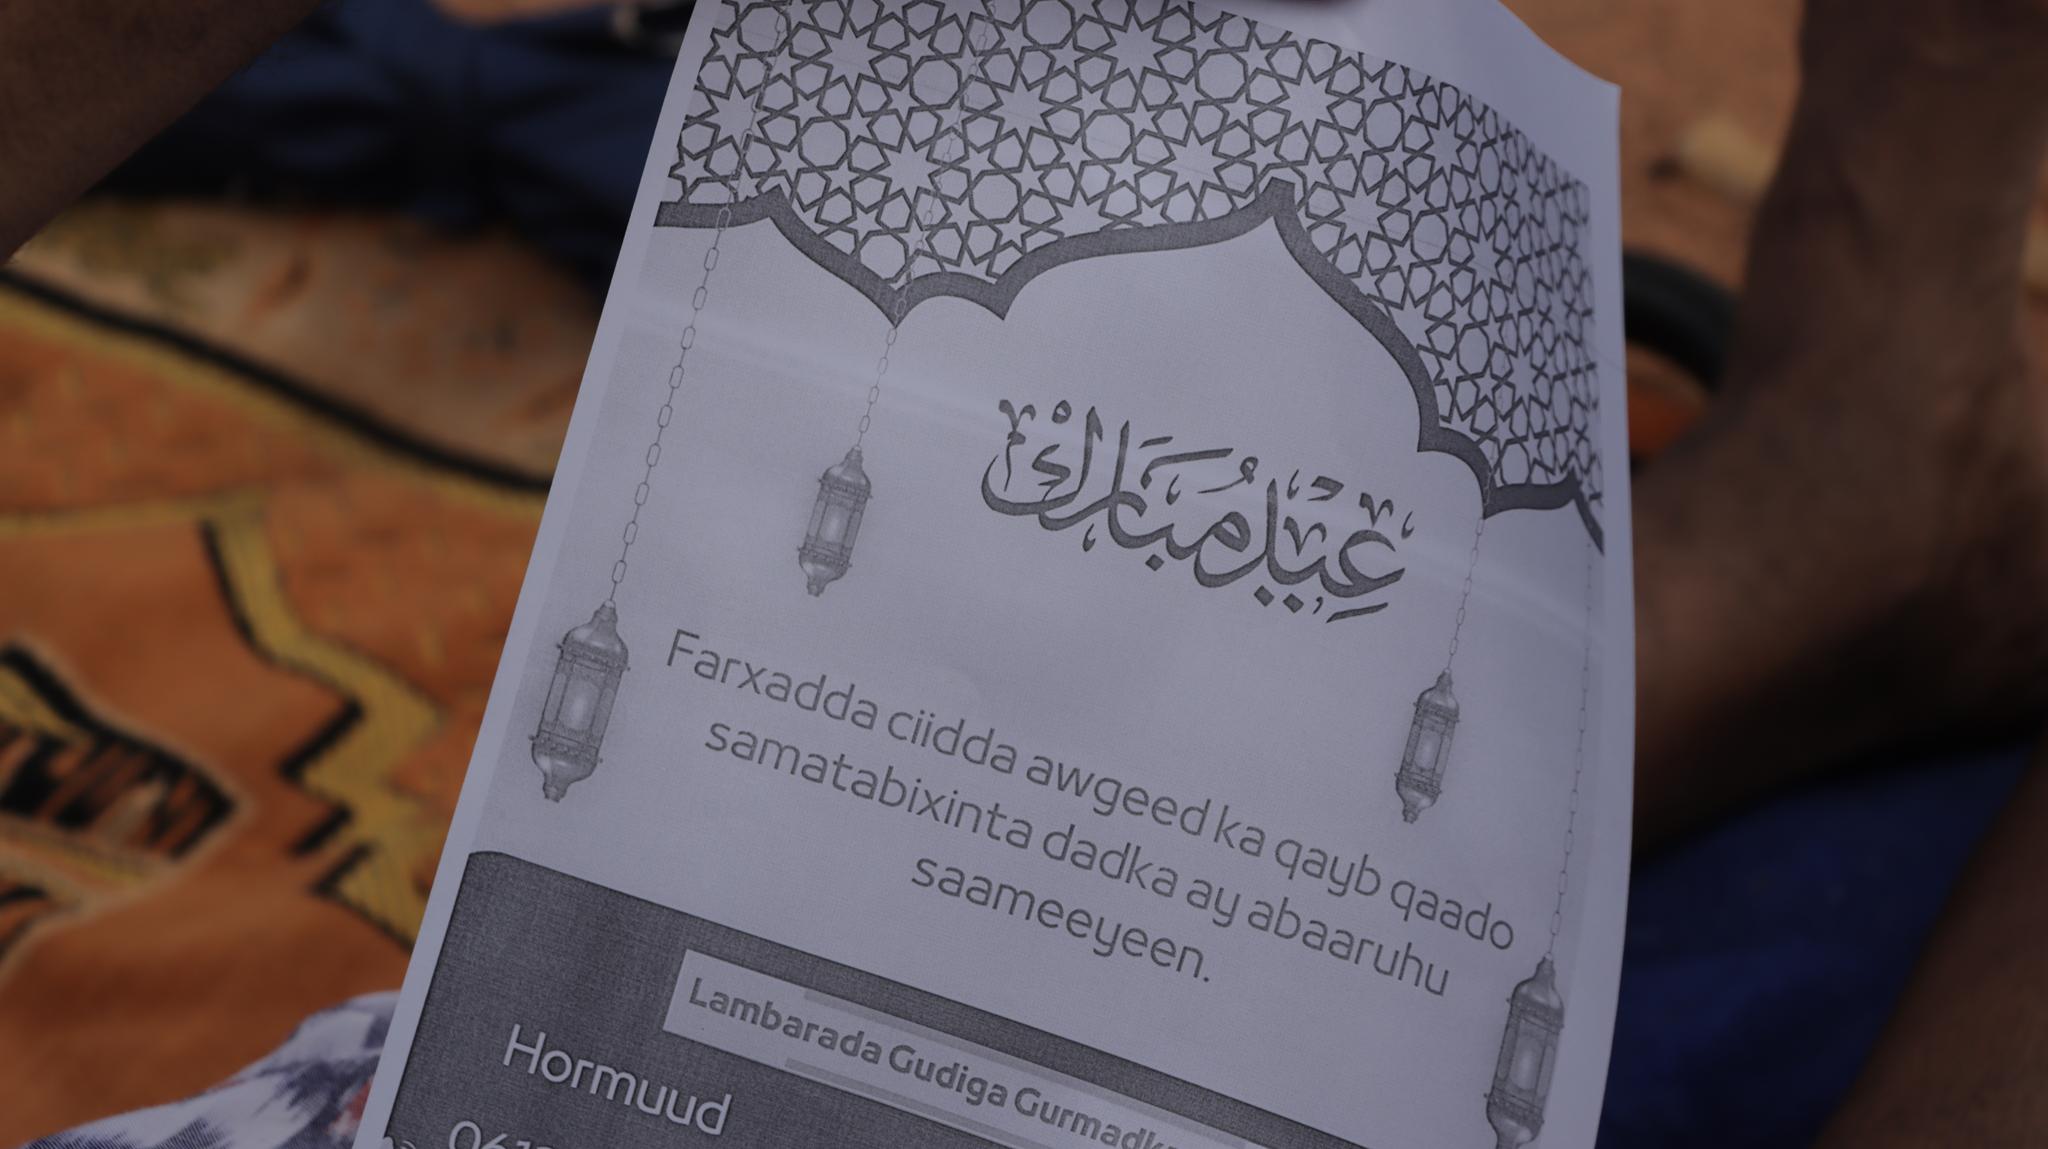 عِيْدٌ مُبَارَكْ
Farxadda ciidda awgeed ka qayb qaado
samatabixinta dadka ay abaaruhu
saameeyeen.
Lambarada Gudiga
Hormuud